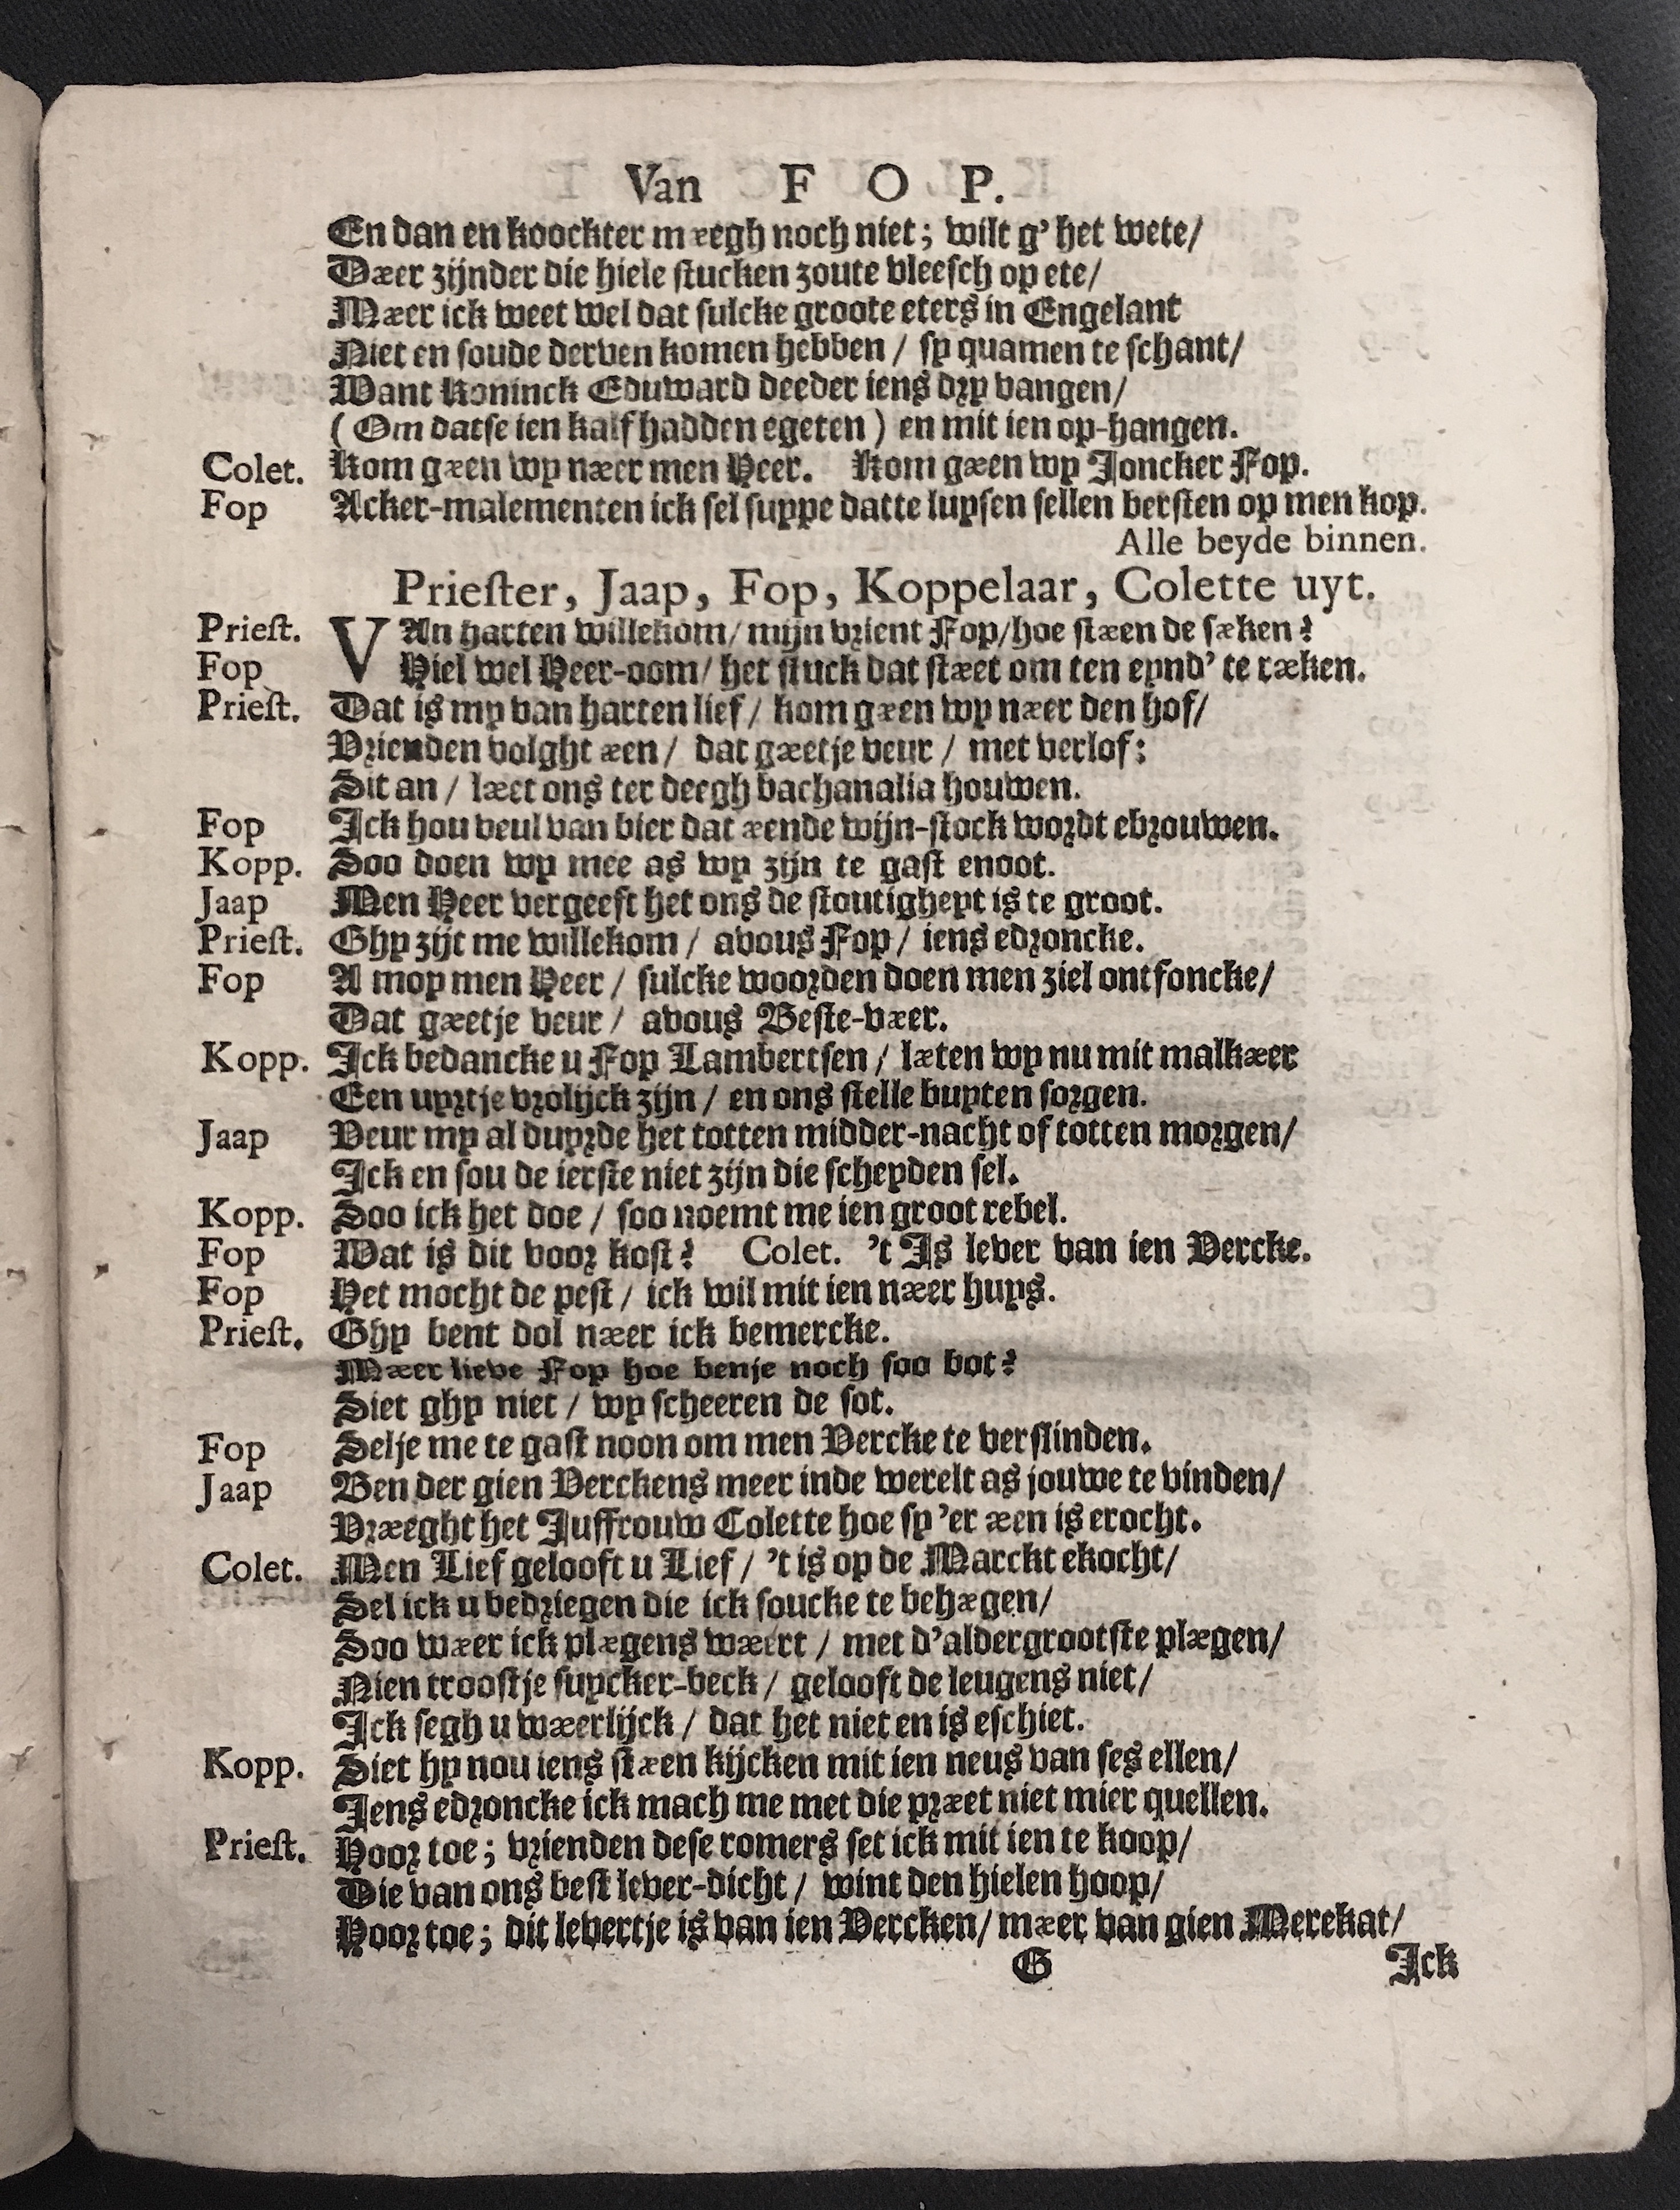 Van F O P.
En dan en koockter mæegh noch niet; wilt g' het wete/
Dæer zijnder die hiele stucken zoute vleesch op ete/
Mæer ick weet wel dat sulcke groote eters in Engelant
Niet en soude derven komen hebben / sy quamen te schant/
Want Koninck Eduward deeder iens dry vangen/
( Om datse ien kalf hadden egeten ) en mit ien op-hangen.
Colet. Kom gæen wy næer men Heer. Kom gæen wy Joncker Fop.
Fop Acker-malementen ick sel suppe datte luysen sellen bersten op men kop.
Alle beyde binnen.
Priester, Jaap, Fop, Koppelaar, Colette uyt.
Priest. VAn harten willekom/ mijn vrient Fop/hoe stæen de sæken?
Fop Hiel wel Heer-oom/ het stuck dat stæet om ten eynd' te ræken.
Priest. Dat is my van harten lief / kom gæen wy næer den hof/
Vrienden volght æen / dat gæetje veur / met verlof;
Sit an / læet ons ter deegh bachanalia houwen.
Fop Ick hou veul van bier dat æende wijn-stock wordt ebrouwen.
Kopp. Soo doen wy mee as wy zijn te gast enoot.
Jaap Men Heer vergeeft het ons de stoutigheyt is te groot.
Priest. Ghy zijt me willekom / avous Fop / iens edroncke.
Fop A moy men Heer / sulcke woorden doen men ziel ontfoncke/
Dat gæetje veur / avous Beste-væer.
Kopp. Ick bedancke u Fop Lambertsen / læten wy nu mit malkæer
Een uyrtje vrolijck zijn / en ons stelle buyten sorgen.
Jaap Veur my al duyrde het totten midder-nacht of totten morgen/
Ick en sou de ierste niet zijn die scheyden sel.
Kopp. Soo ick het doe / soo noemt me ien groot rebel.
Fop Wat is dit voor kost? Colet. 't Is lever van ien Vercke.
Fop Het mocht de pest / ick wil mit ien næer huys.
Priest. Ghy bent dol næer ick bemercke.
Mæer lieve Fop hoe benje noch soo bot?
Siet ghy niet / wy scheeren de sot.
Fop Selje me te gast noon om men Vercke te verslinden.
Jaap Ben der gien Verckens meer inde werelt as jouwe te vinden/
Vræeght het Juffrouw Colette hoe sy 'er æen is erocht.
Colet. Men Lief gelooft u Lief / 't is op de Marckt ekocht/
Sel ick u bedriegen die ick soucke te behægen/
Soo wæer ick plægens wæert / met d'aldergrootste plægen/
Nien troostje suycker-beck / gelooft de leugens niet/
Ick segh u wæerlijck / dat het niet en is eschiet.
Kopp. Siet hy nou iens stæen kijcken mit ien neus van ses ellen/
Iens edroncke ick mach me met die præet niet mier quellen.
Priest. Hoor toe; vrienden dese romers set ick mit ien te koop/
Die van ons best lever-dicht / wint den hielen hoop/
Hoor toe; dit levertje is van ien Vercken/ mæer van gien Merekat/
G Ick